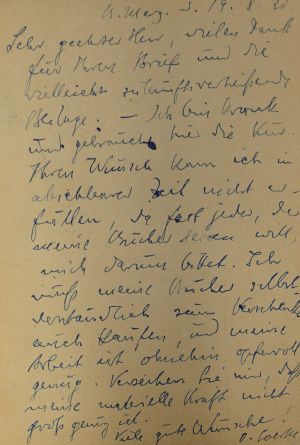 Sehr geehrter Herr, vielen Dank
für Ihren Brief und die
vielleicht zukunftsverheißende
Beilage. — Ich bin krank
und gebrauche hier die Kur.
Ihren Wunsch kann ich in
absehbarer Zeit nicht er-
füllen, da fast jeder, der
meine Bücher lesen will,
mich darum bittet. Ich
muß meine Bücher selbst-
verständlich zum Verschenken
auch kaufen, und meine
Arbeit ist ohnehin opfervoll
genug. Verzeihen Sie mir, daß
meine materielle Kraft nicht
groß genug ist.
Viele gute Wünsche!